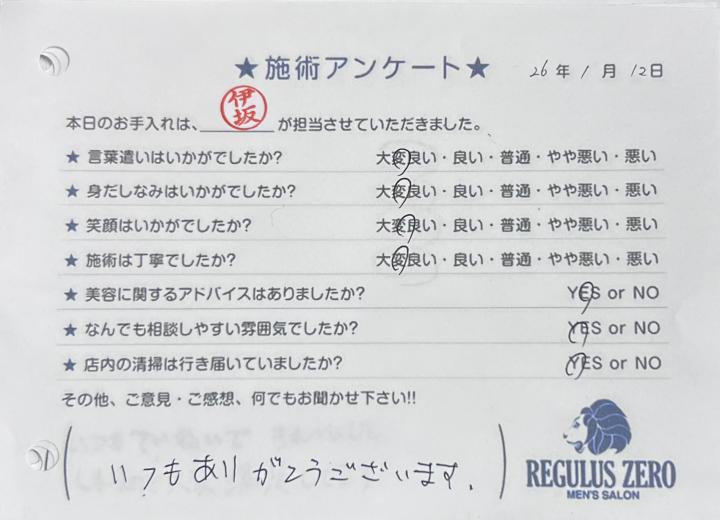 ★施術アンケート★ 26年1月12日
本日のお手入れは、伊坂が担当させていただきました。
★ 言葉遣いはいかがでしたか? 大変良い・良い・普通・やや悪い・悪い
★ 身だしなみはいかがでしたか? 大変良い・良い・普通・やや悪い・悪い
★ 笑顔はいかがでしたか? 大変良い・良い・普通・やや悪い・悪い
★ 施術は丁寧でしたか? 大変良い・良い・普通・やや悪い・悪い
★ 美容に関するアドバイスはありましたか? YES or NO
★ なんでも相談しやすい雰囲気でしたか? YES or NO
★ 店内の清掃は行き届いていましたか? YES or NO
その他、ご意見・ご感想、何でもお聞かせ下さい!!
いつもありがとうございます。
REGULUS ZERO
MEN'S SALON